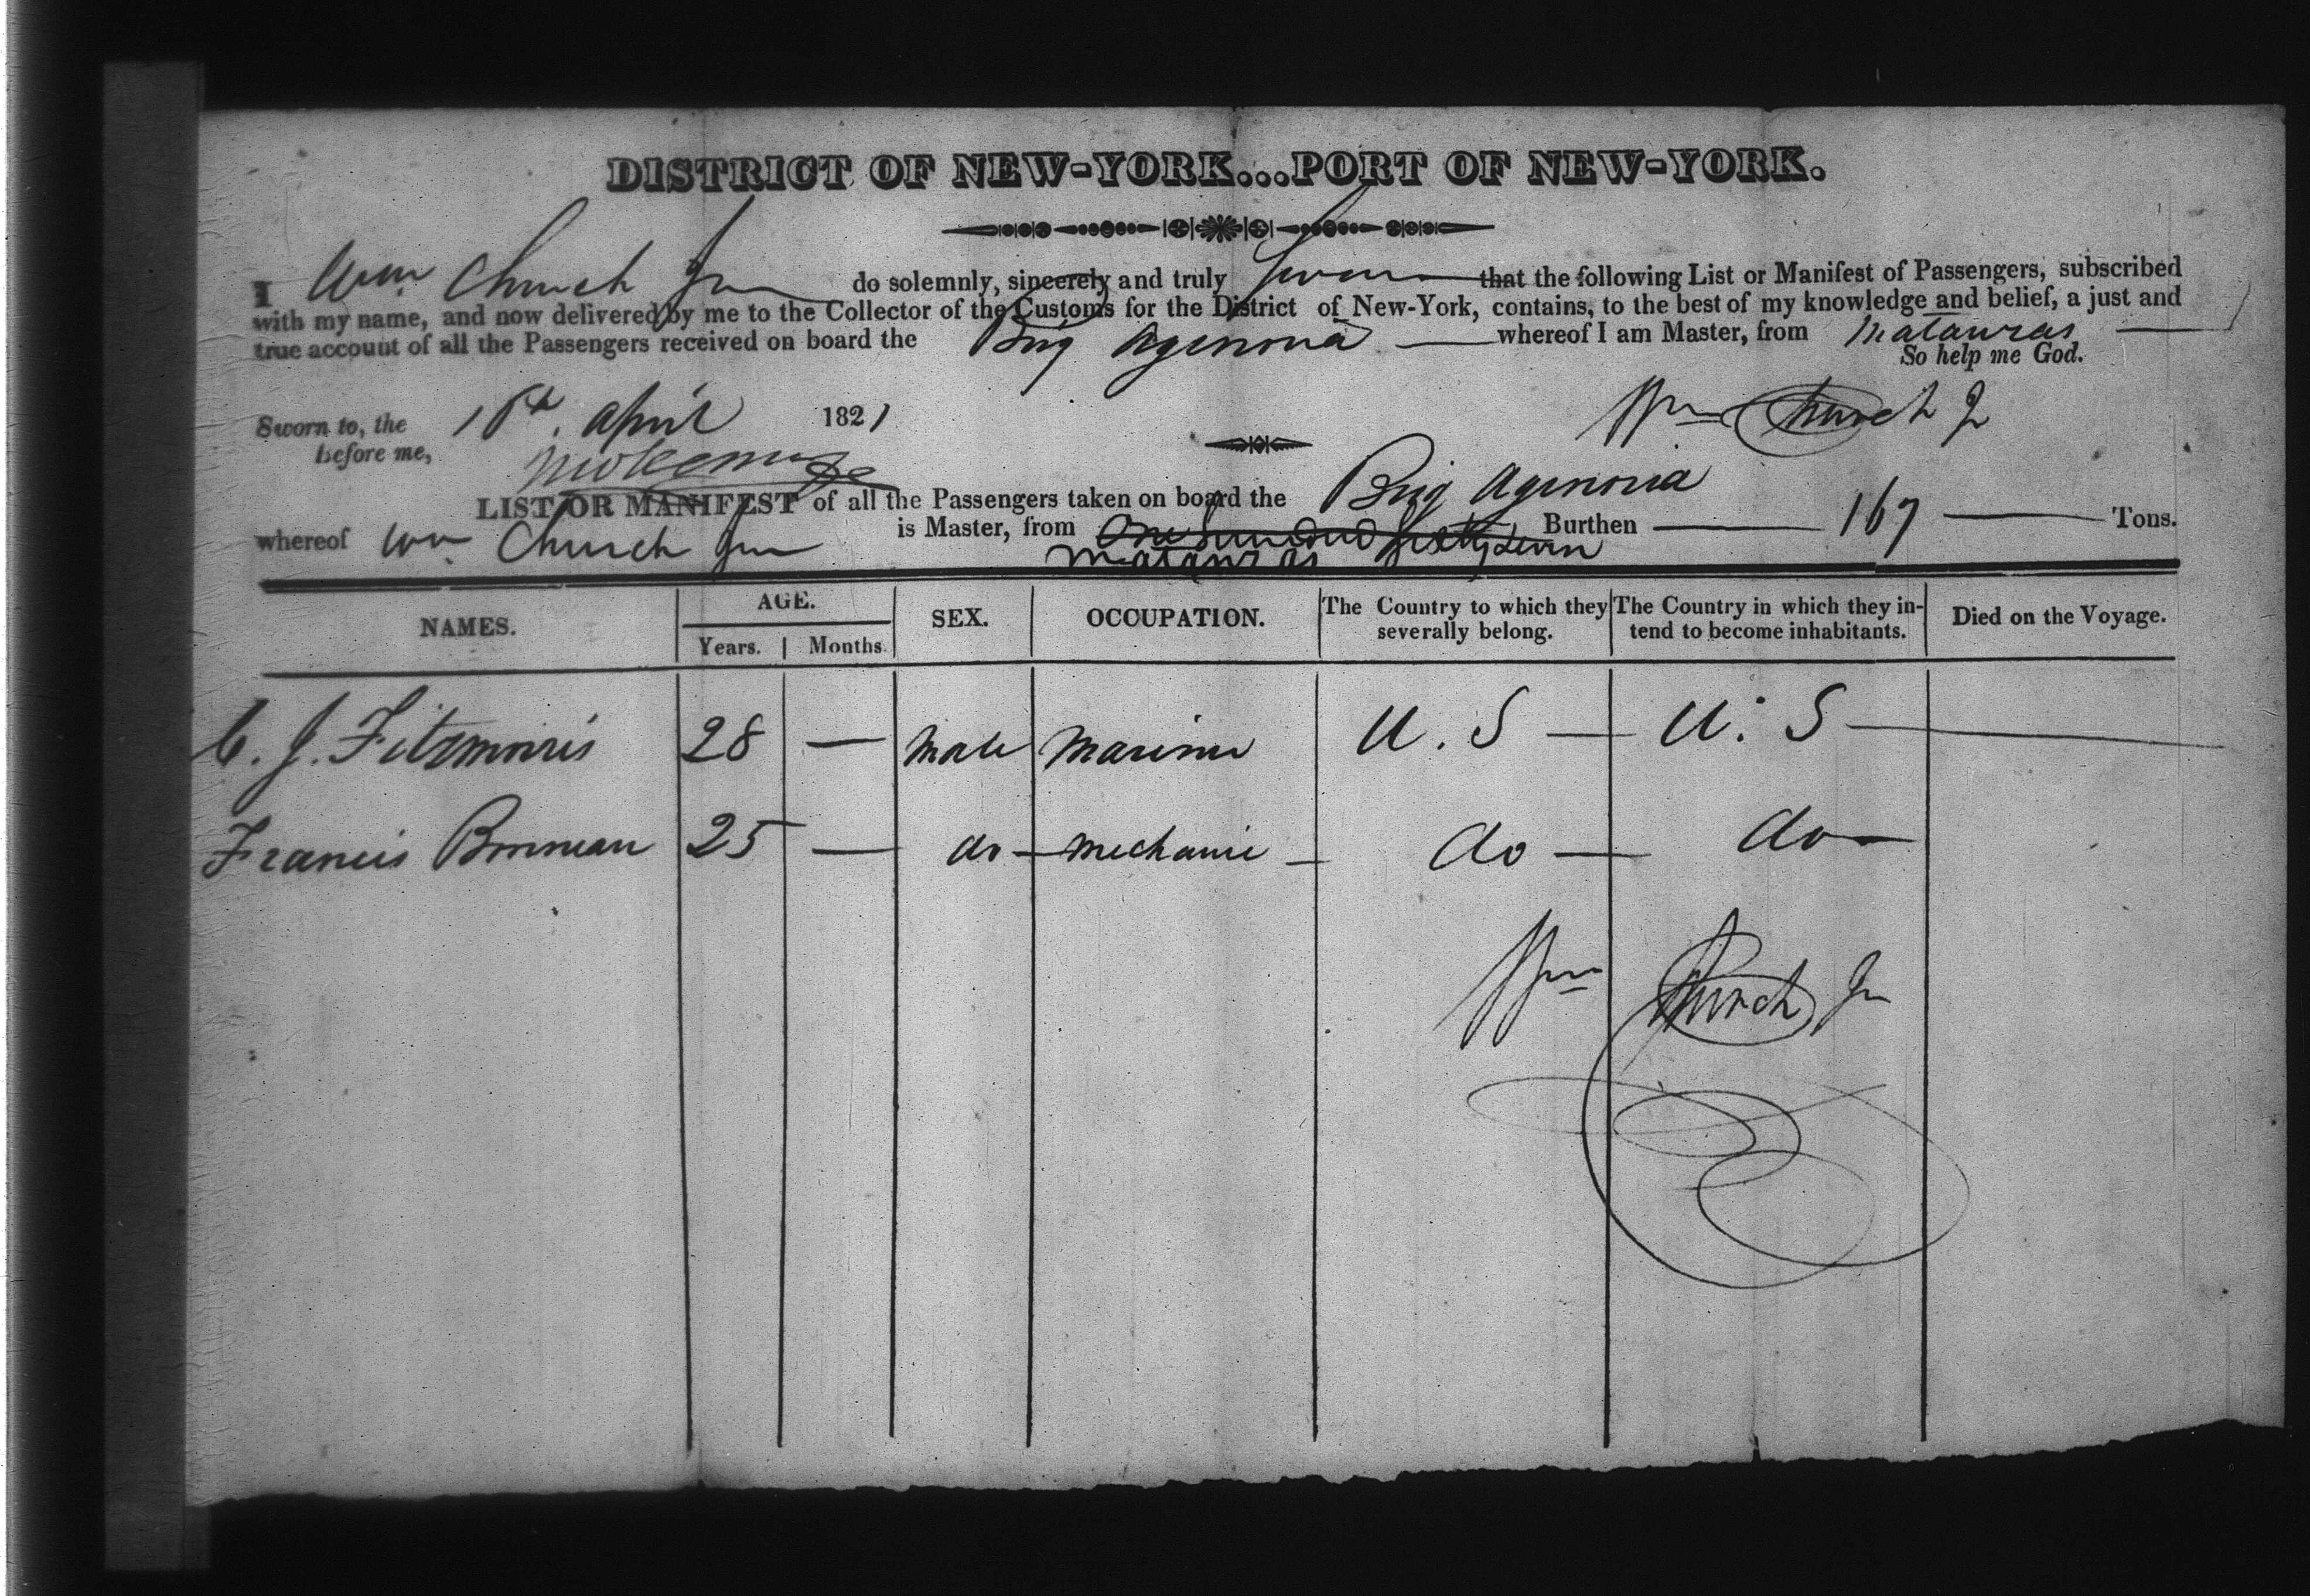 DISTRICT OF NEW-YORK...PORT OF NEW-YORK.
I Wm. Church Jun do solemnly, sincerely and truly Swear that the following List or Manifest of Passengers, subscribed
with my name, and now delivered by me to the Collector of the Customs for the District of New-York, contains, to the best of my knowledge and belief, a just and
true account of all the Passengers received on board the Brig Agenoria whereof I am Master, from Matanzas
So help me God.
Sworn to, the April 1821
Wm Church Jr
before me,
LIST OR MANIFEST of all the Passengers taken on board the Brig Agenoria
whereof Wm. Church Jun is Master, from One hundred sixty seven Burthen 167 Tons.
Matanzas
NAMES. AGE. SEX. OCCUPATION. The Country to which they severally belong. The Country in which they in-tend to become inhabitants. Died on the Voyage.
Years. Months.
C. J. Fitzmorris 28 — Male Mariner U. S — U. S —
Francis 25 — do — Mechanic — do — do —
Wm Church Jn